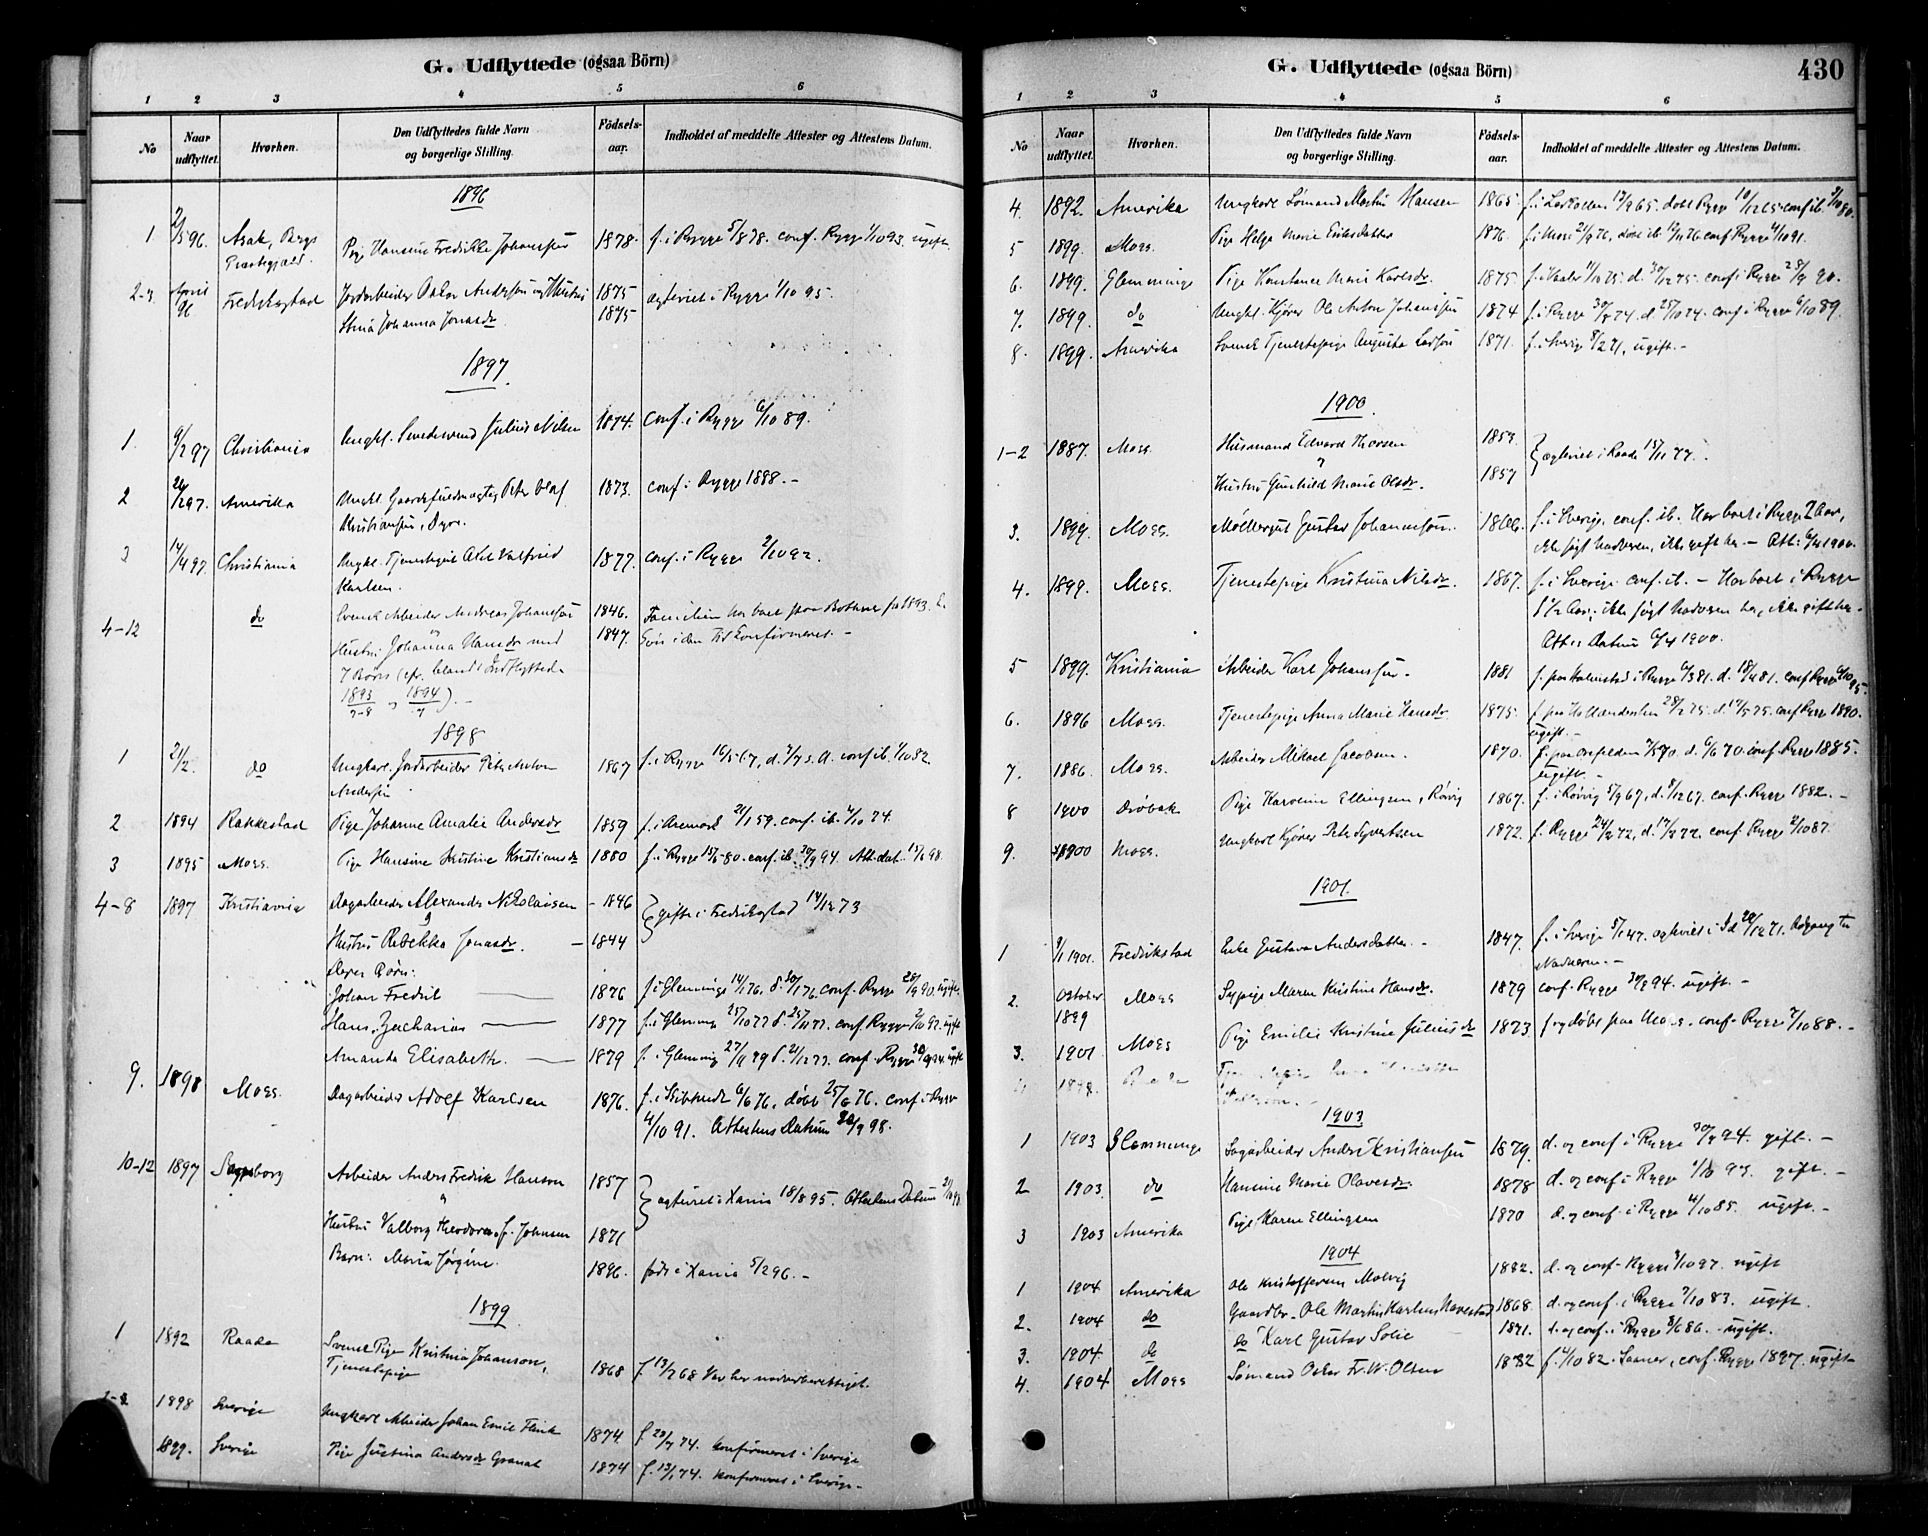 G. Udflyttede (ogsaa Börn)
1 2 3 4 5 6
No Naar udflyttet. Hvorhen. Den Udflyttedes fulde Navn og borgerlige Stilling. Födsels-aar. Indholdet af meddelte Attester og Attestens Datum.
1896
1 2/5 96. Asak, Bergs Præstegjæld. Pige Hansine Fredrikke Johanssen 1878. f. i Rygge 5/8 78. conf. Rygge 1/10 93. ugift
2-3 April 96 Fredrikstad Jordarbeider Oskar Anderssen og Hustru 1875 ægteviet i Rygge 1/10 95.
Stina Johanna Jonasdr 1875
1897
1. 9/2 97 Christiania Ungkl. Smedesvend Julius Nilsen 1874. conf. i Rygge 6/10 89.
2 26/2 97. Amerika Ungkl. Gaardsfuldmægtig Peter Olaf 1873. conf. i Rygge 1888. -
Kristiansen, Dyre.
3 14/4 97. Christiania Ungkl. Tjenestegut Axel Valfried 1877. conf. i Rygge 2/10 92.
Karlsen.
4-12 do Svensk Arbeider Andreas Johanssen 1846. Familien har boet paa Botner fra 1893. En
Hustru Johanna Hansdr med 1847. Søn i den Tid konfirmeret. -
7 Børn (cfr. blandt Indflyttede
1893/7-8 og 1894/7). -
1898
1 21/2. do Ungkarl. Jordarbeider Peter Anton 1867 f. i Rygge 16/5 67, d. 7/7 s. A. conf. ib. 1/10 82.
Anderssen
2 1894 Rakkestad Pige Johanne Amalie Andersdr 1859 f. i Aremark 21/1 59. conf. ib. 4/10 74.
3 1895 Moss. Pige Hansine Kristine Kristiansdr 1880 f. i Rygge 15/6 80. conf. ib. 30/9 94. Att. dat. 15/6 98.
4-8 1897 Kristiania Dagarbeider Alexander Nikolaisen - 1846 gifte i Fredrikstad 14/12 73
&
Hustru Rebekka Jonasdr. - 1844
Deres Børn:
Johan Fredrik 1876 f. i Glemminge 14/1 76. d. 30/1 76. conf. Rygge 28/9 90. ugift.
Hans Zacharias 1877 f. i Glemming 25/10 77 d. 25/11 77. conf. Rygge 2/10 92. ugift
Amanda Elisabeth. 1879 f. i Glemming 27/11 79 d. 21/12 79. conf. Rygge 30/9 94. ugift
9. 1898 Moss. Dagarbeider Adolf Karlsen 1876. f. i Skibtvedt 6/6 76, døbt 25/6 76. conf. i Rygge
4/10 91. Attestens Datum 30/9 98.
10-12 1897 Sarpsborg Arbeider Anders Fredrik Hanson 1857 ægteviet i Xania 18/8 95. Attestens Datum
Hustru Valborg Theodora f. Johnsen 1871
Barn: Maria Jørgine. 1896. født i Xania 5/2 96. -
1899
1 1892 Raade Svensk Pige Kristina Johanson, 1868 f. 13/2 68 Var her nadverberettiget.
Tjenestepige
1898 Sverige Ungkarl Arbeider Johan Emil Flink 1874. f. 20/4 74. konfirmeret i Sverige
1899. Sverige Pige Justina Andersdr Granat 1874 f. 13/1 74. konfirmeret i Sverige. -
G. Udflyttede (ogsaa Börn) 430
1 2 3 4 5 6
No Naar udflyttet. Hvorhen. Den Udflyttedes fulde Navn og borgerlige Stilling. Födsels-aar. Indholdet af meddelte Attester og Attestens Datum.
4. 1892. Amerika Ungkarl Sømand Martin Hansen 1865. f. i Larkollen 17/9 65. døbt Rygge 10/12 65. conf. ib. 3/10 80.
5 1899. Moss. Pige Helga Marie Eriksdatter 1876. f. i Moss 21/9 76, døbt ib. conf. Rygge 4/10 91.
6. 1899. Glemminge Pige Konstance Marie Karlsdr. 1875. f. i Vaaler 11/10 75. d. 30/12 75. conf. i Rygge 28/9 90.
7. 1899. do Ungkl. Kjører Ole Anton Johanssen 1874 f. i Rygge 30/8 74. d. 25/10 74. conf. i Rygge 6/10 89.
8. 1899. Amerika Svensk Tjenestepige Augusta Larsen 1871. f. i Sverige 8/2 71, ugift. -
1900.
1-2 1887. Moss. Husmand Edvard Thorsen 1853. ægteviet i Raade 15/11 77.
&
Hustru Gunhild Marie Olsdr. 1857
3. 1899. Moss. Møllergut Gustav Johannssen. 1866. f. i Sverige, conf. ib. Har boet i Rygge 2 Aar,
ikke søgt nadveren, ikke gift her. - Att. 6/4 1900.
4. 1899. Moss. Tjenestepige Kristina Nilsdr. 1867. f. i Sverige conf. ib. - Har boet i Rygge
1/2 Aar, ikke søgt nadveren her, ikke gift her. -
Att. s Datum 6/4 1900.
5 1899. Kristiania Arbeider Karl Johanssen. 1881 f. paa Halmstad i Rygge 6/3 81. d. 18/4 81. conf. Rygge 6/10 95.
6. 1896 Moss. Tjenestepige Anna Marie Hansdr 1875. f. paa Hollænderstuen 28/2 75. d. 17/5 75. conf. Rygge 1890.
ugift. -
7. 1886. Moss. Arbeider Mikael Jacobsen. 1870. f. paa 7/5 70. d. 6/6 70. conf. Rygge 1885.
ugift. -
8 1900 Drøbak Pige Karoline Ellingsen, Rørvig 1867. f. i Rørvig 5/9 67, d. 8/12 67. conf. Rygge 1882. -
9. 1900 Moss. Ungkarl Kjører Peter Syvertsen 1872. f. Rygge 24/2 72, d. conf. Rygge 2/10 87.
1901.
1 1901. Fredrikstad Enke Gustava Andersdatter. - 1847. f. i Sverige 5/1 47. ægteviet i Id 28/12 71. Adgang til
Nadveren. -
2. Oktober 1899 Moss Sypige Maren Kristine Hansdr. 1879 conf. Rygge 30/9 94. ugift. -
3. 1901 Moss Pige Emilie Kristine Juliusdr 1873 f. og døbt paa Moss. conf. Rygge 7/10 88. -
1903
1 1903 Glemminge Sagarbeider Andr. Kristiansen 1879. d. og conf. i Rygge 30/9 94. gift. -
2 1903. do Hansine Marie Olavesdr. 1878 d. og conf. i Rygge 1/10 93. gift. -
3 1903 Amerika Pige Karen Ellingsen 1870 d. og conf. i Rygge 4/10 85. ugift. -
1904
1 1904 Amerika Ole Kristoffersen Molvig 1882. d. og conf. Rygge 3/10 97. ugift
2. 1904 do Gaardbr. Ole Martin Karlsen Navestad 1868. d. og conf. i Rygge 7/10 83. ugift.
3. 1904. do do Karl Gustav Solie 1871. d. og conf. i Rygge 3/6 86. - ugift.
4. 1904 Moss Sømand Oskar Fr. W. Olsen 1882 f. 4/10 82. Saaner, conf. Rygge 1897. ugift